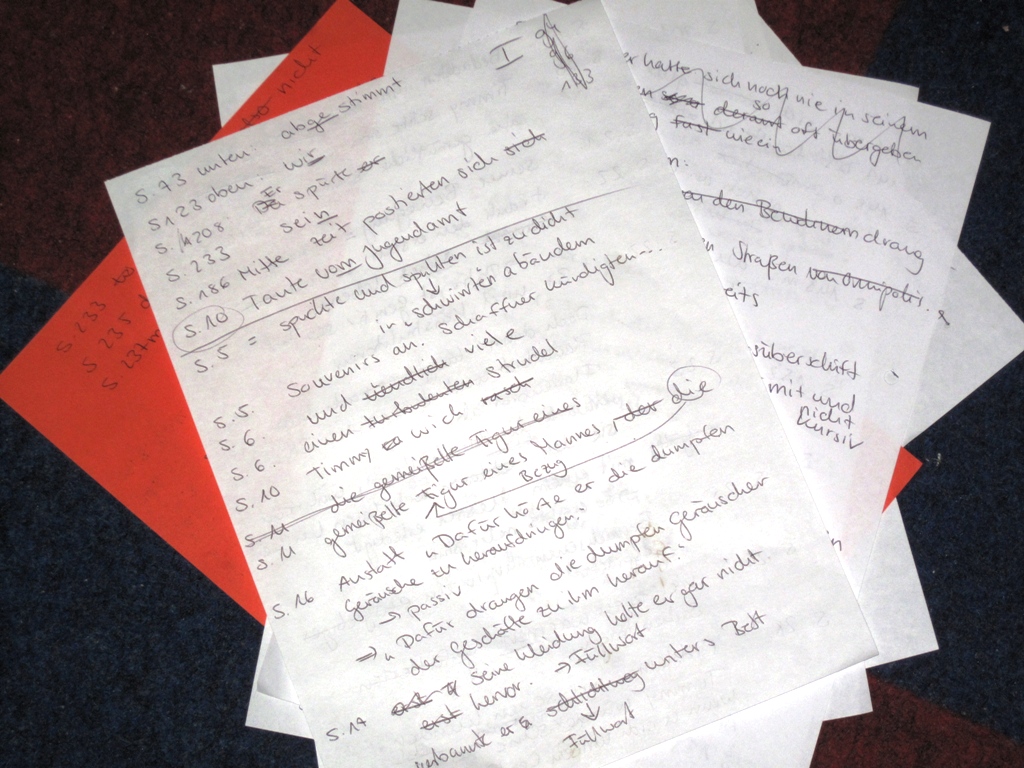 I
S. 93 unten: abgestimmt
S. 123 oben: wir
S. 1208 Er spürte er
S. 233 sein
S. 186 Mitte zeit postierten sich sich
S. 10 Tante vom Jugendamt
S. 5 = spuckte und spuckten ist zu dicht
in „schwirrten abändern
S. 5. Souvenirs an. Schaffner kündigten...
S. 6. und ziemlich viele
S. 6. einen turbulenten Strudel
S. 10 Timmy wich rasch
S. 11 die gemeißelte Figur eines
S. 11 gemeißelte Figur eines Mannes, der die
Bezug
S. 16 Anstatt „Dafür hörte er die dumpfen
Geräusche zu heraufdringen."
→ passiv
→ „Dafür drangen die dumpfen Geräuscher
der Geschäfte zu ihm herauf."
S. 17 Seine Kleidung holte er gar nicht
erst hervor. → Füllwort
verbannte er schlichtweg unters Bett
Füllwort
nicht
S. 233
S. 235
S. 237
er hatte sich noch nie in seinem
so
derart oft übergeben
fast wie ein
den Bendnerndrang
Straßen von Onnipolis.
überschrift
mit und
nicht
kursiv